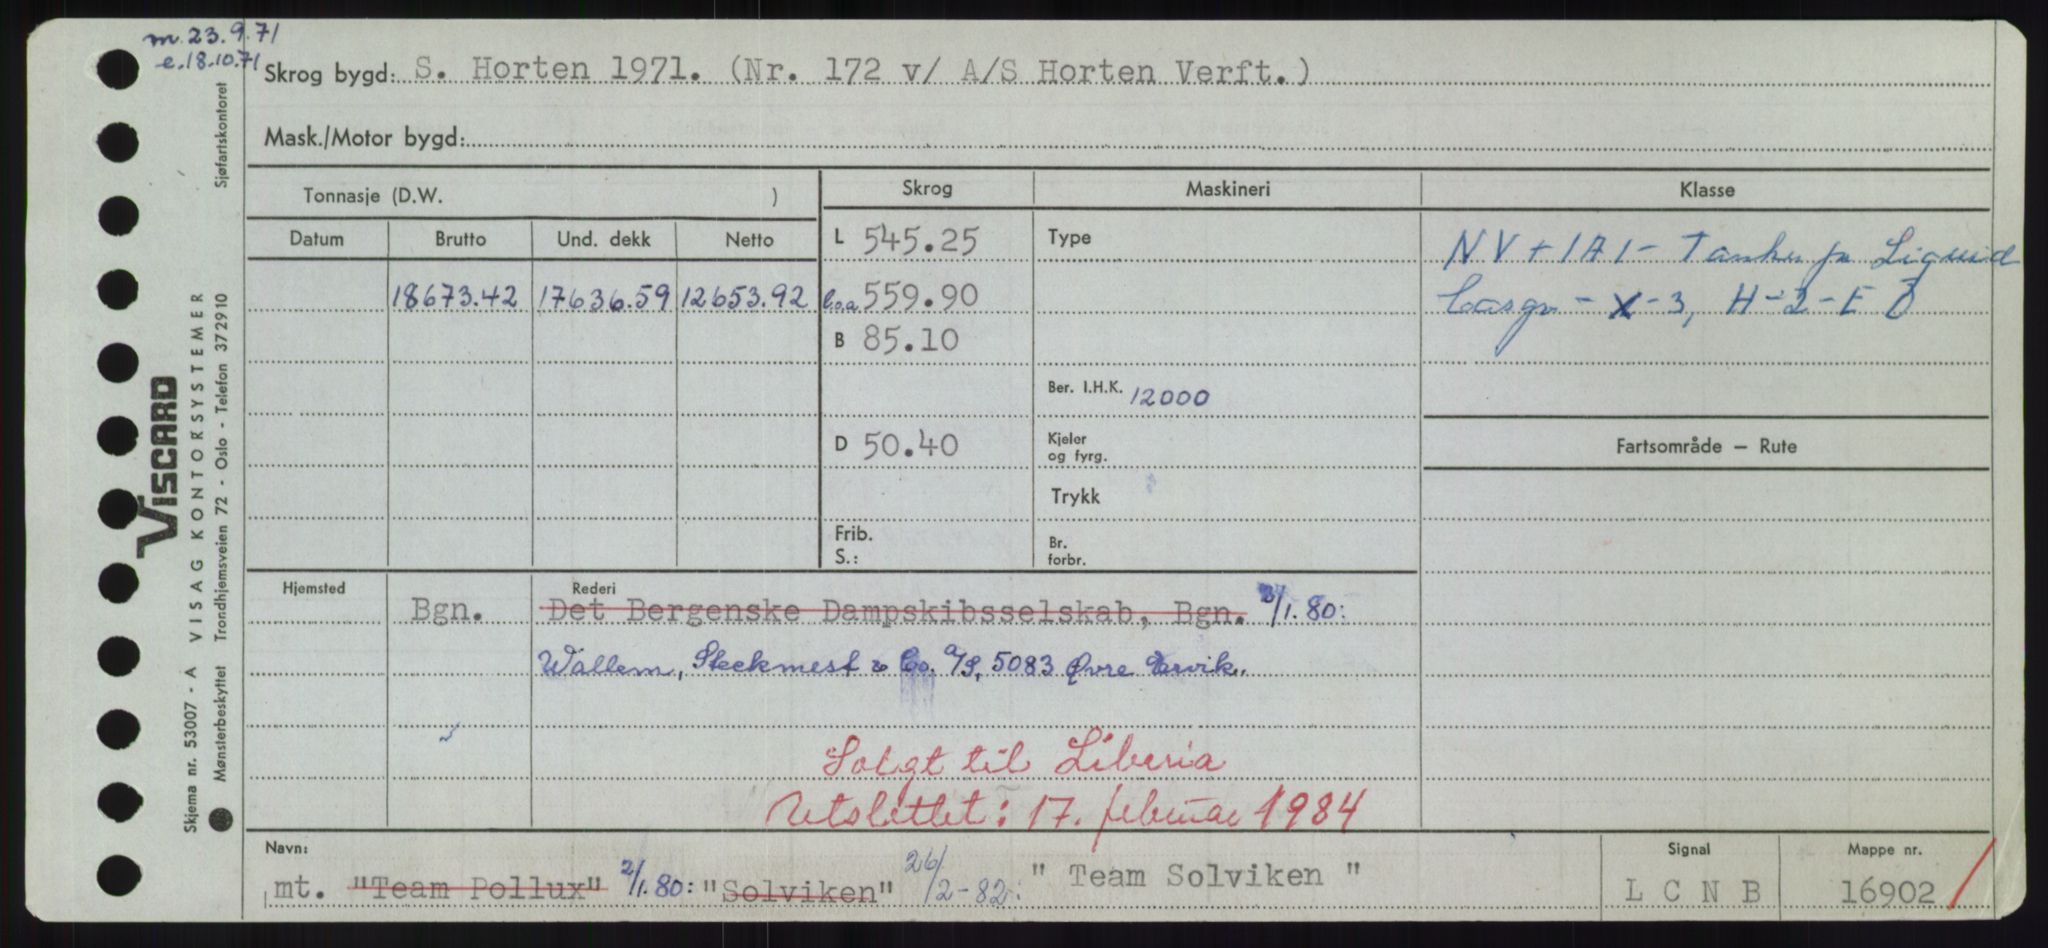 m. 23.9.71
e. 18.10.71
Skrog bygd: S. Horten 1971. (Nr. 172 v/ A/S Horten Verft.)
Mask./Motor bygd:
Tonnasje (D.W. )
Skrog
Maskineri
Klasse
Datum
Brutto
Und. dekk
Netto
L 545.25
Type
NV + 1A1 - Tanker for Liquid
18673.42 17636.59 12653.92
l.o.a 559.90
Cargo - X-3, H-2-EO
B 85.10
Ber. I.H.K. 12000
D 50.40
Kjeler
og fyrg.
Fartsområde — Rute
Trykk
Frib.
S.:
Br.
forbr.
Hjemsted
Rederi
Bgn. Det Bergenske Dampskibsselskab, Bgn. 2/1.80:
Wallem, Steckmest & Co. A/S, 5083 Øvre Ervik.
Solgt til Liberia
Utslettet: 17. februar 1984
Navn:
Signal
Mappe nr.
mt. "Team Pollux" 2/1.80: "Solviken" 26/2-82: " Team Solviken "
L C N B
16902
VISCARD
VISAG KONTORSYSTEMER
Skjema nr. 53007 - A
Mønsterbeskyttet Trondhjemsveien 72 - Oslo - Telefon 372910 Sjøfartskontoret